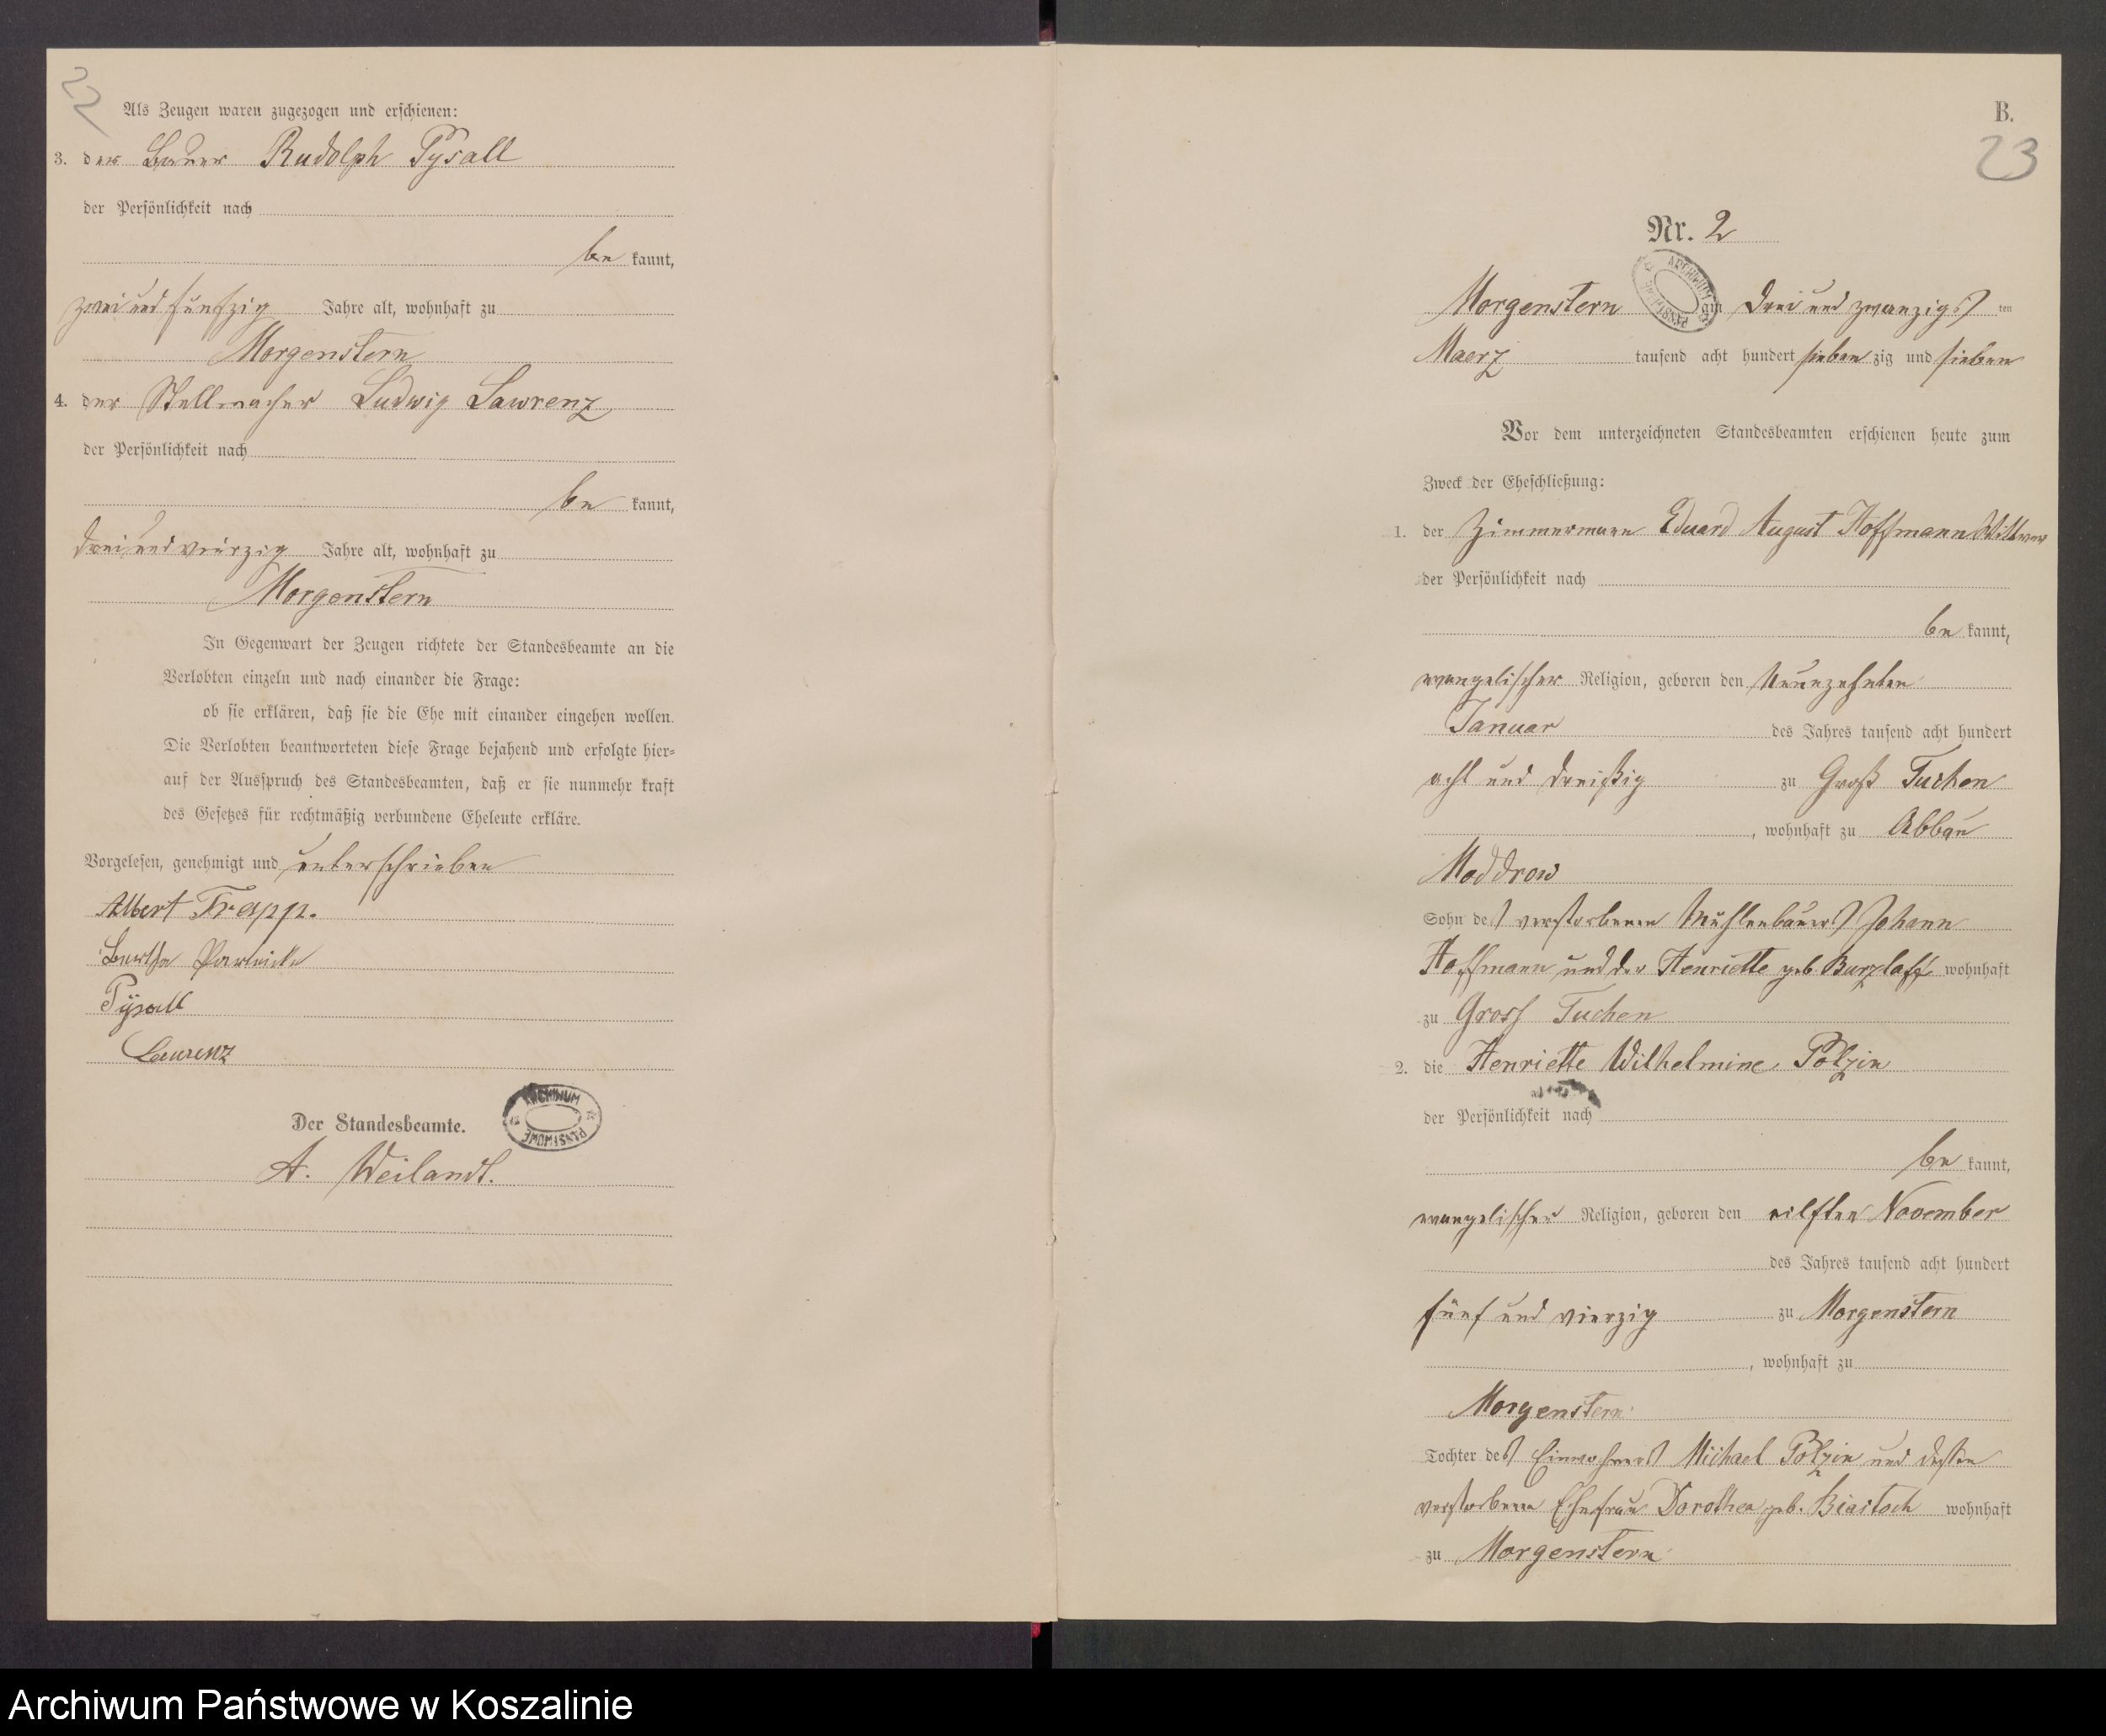 22
Als Zeugen waren zugezogen und erschienen:
3. der Bauer Rudolph Pysall
der Persönlichkeit nach
be kannt,
zwei und fünfzig Jahre alt, wohnhaft zu
Morgenstern
4. der Stellmacher Ludwig Lawrenz
der Persönlichkeit nach
be kannt,
drei und vierzig Jahre alt, wohnhaft zu
Morgenstern
In Gegenwart der Zeugen richtete der Standesbeamte an die
Verlobten einzeln und nach einander die Frage:
ob sie erklären, daß sie die Ehe mit einander eingehen wollen.
Die Verlobten beantworteten diese Frage bejahend und erfolgte hier-
auf der Ausspruch des Standesbeamten, daß er sie nunmehr kraft
des Gesetzes für rechtmäßig verbundene Eheleute erkläre.
Vorgelesen, genehmigt und unterschrieben
Albert Trapp.
Bertha
Pysall
Laurenz
Der Standesbeamte.
ARCHIWUM PAŃSTWOWE
A. Weilandt.
B.
23
Nr. 2
ARCHIWUM PAŃSTWOWE
Morgenstern am drei und zwanzigs ten
Maerz tausend acht hundert sieben zig und sieben
Vor dem unterzeichneten Standesbeamten erschienen heute zum
Zweck der Eheschließung:
1. der Zimmermann Eduard August Hoffmann Wittwer
der Persönlichkeit nach
be kannt,
evangelischer Religion, geboren den Neunzehnten
Januar des Jahres tausend acht hundert
acht und dreißig zu Groß Tuchen
, wohnhaft zu Abbau
Moddrow
Sohn des verstorbenen Mühlenbauers Johann
Hoffmann und der Henriette geb. Burzlaff wohnhaft
zu Gross Tuchen
2. die Henriette Wilhelmine Polzin
der Persönlichkeit nach
be kannt,
evangelischer Religion, geboren den eilften November
des Jahres tausend acht hundert
fünf und vierzig zu Morgenstern
, wohnhaft zu
Morgenstern
Tochter des Einwohners Michael Polzin und dessen
verstorbenen Ehefrau Dorothea geb. Biastoch wohnhaft
zu Morgenstern
Archiwum Państwowe w Koszalinie